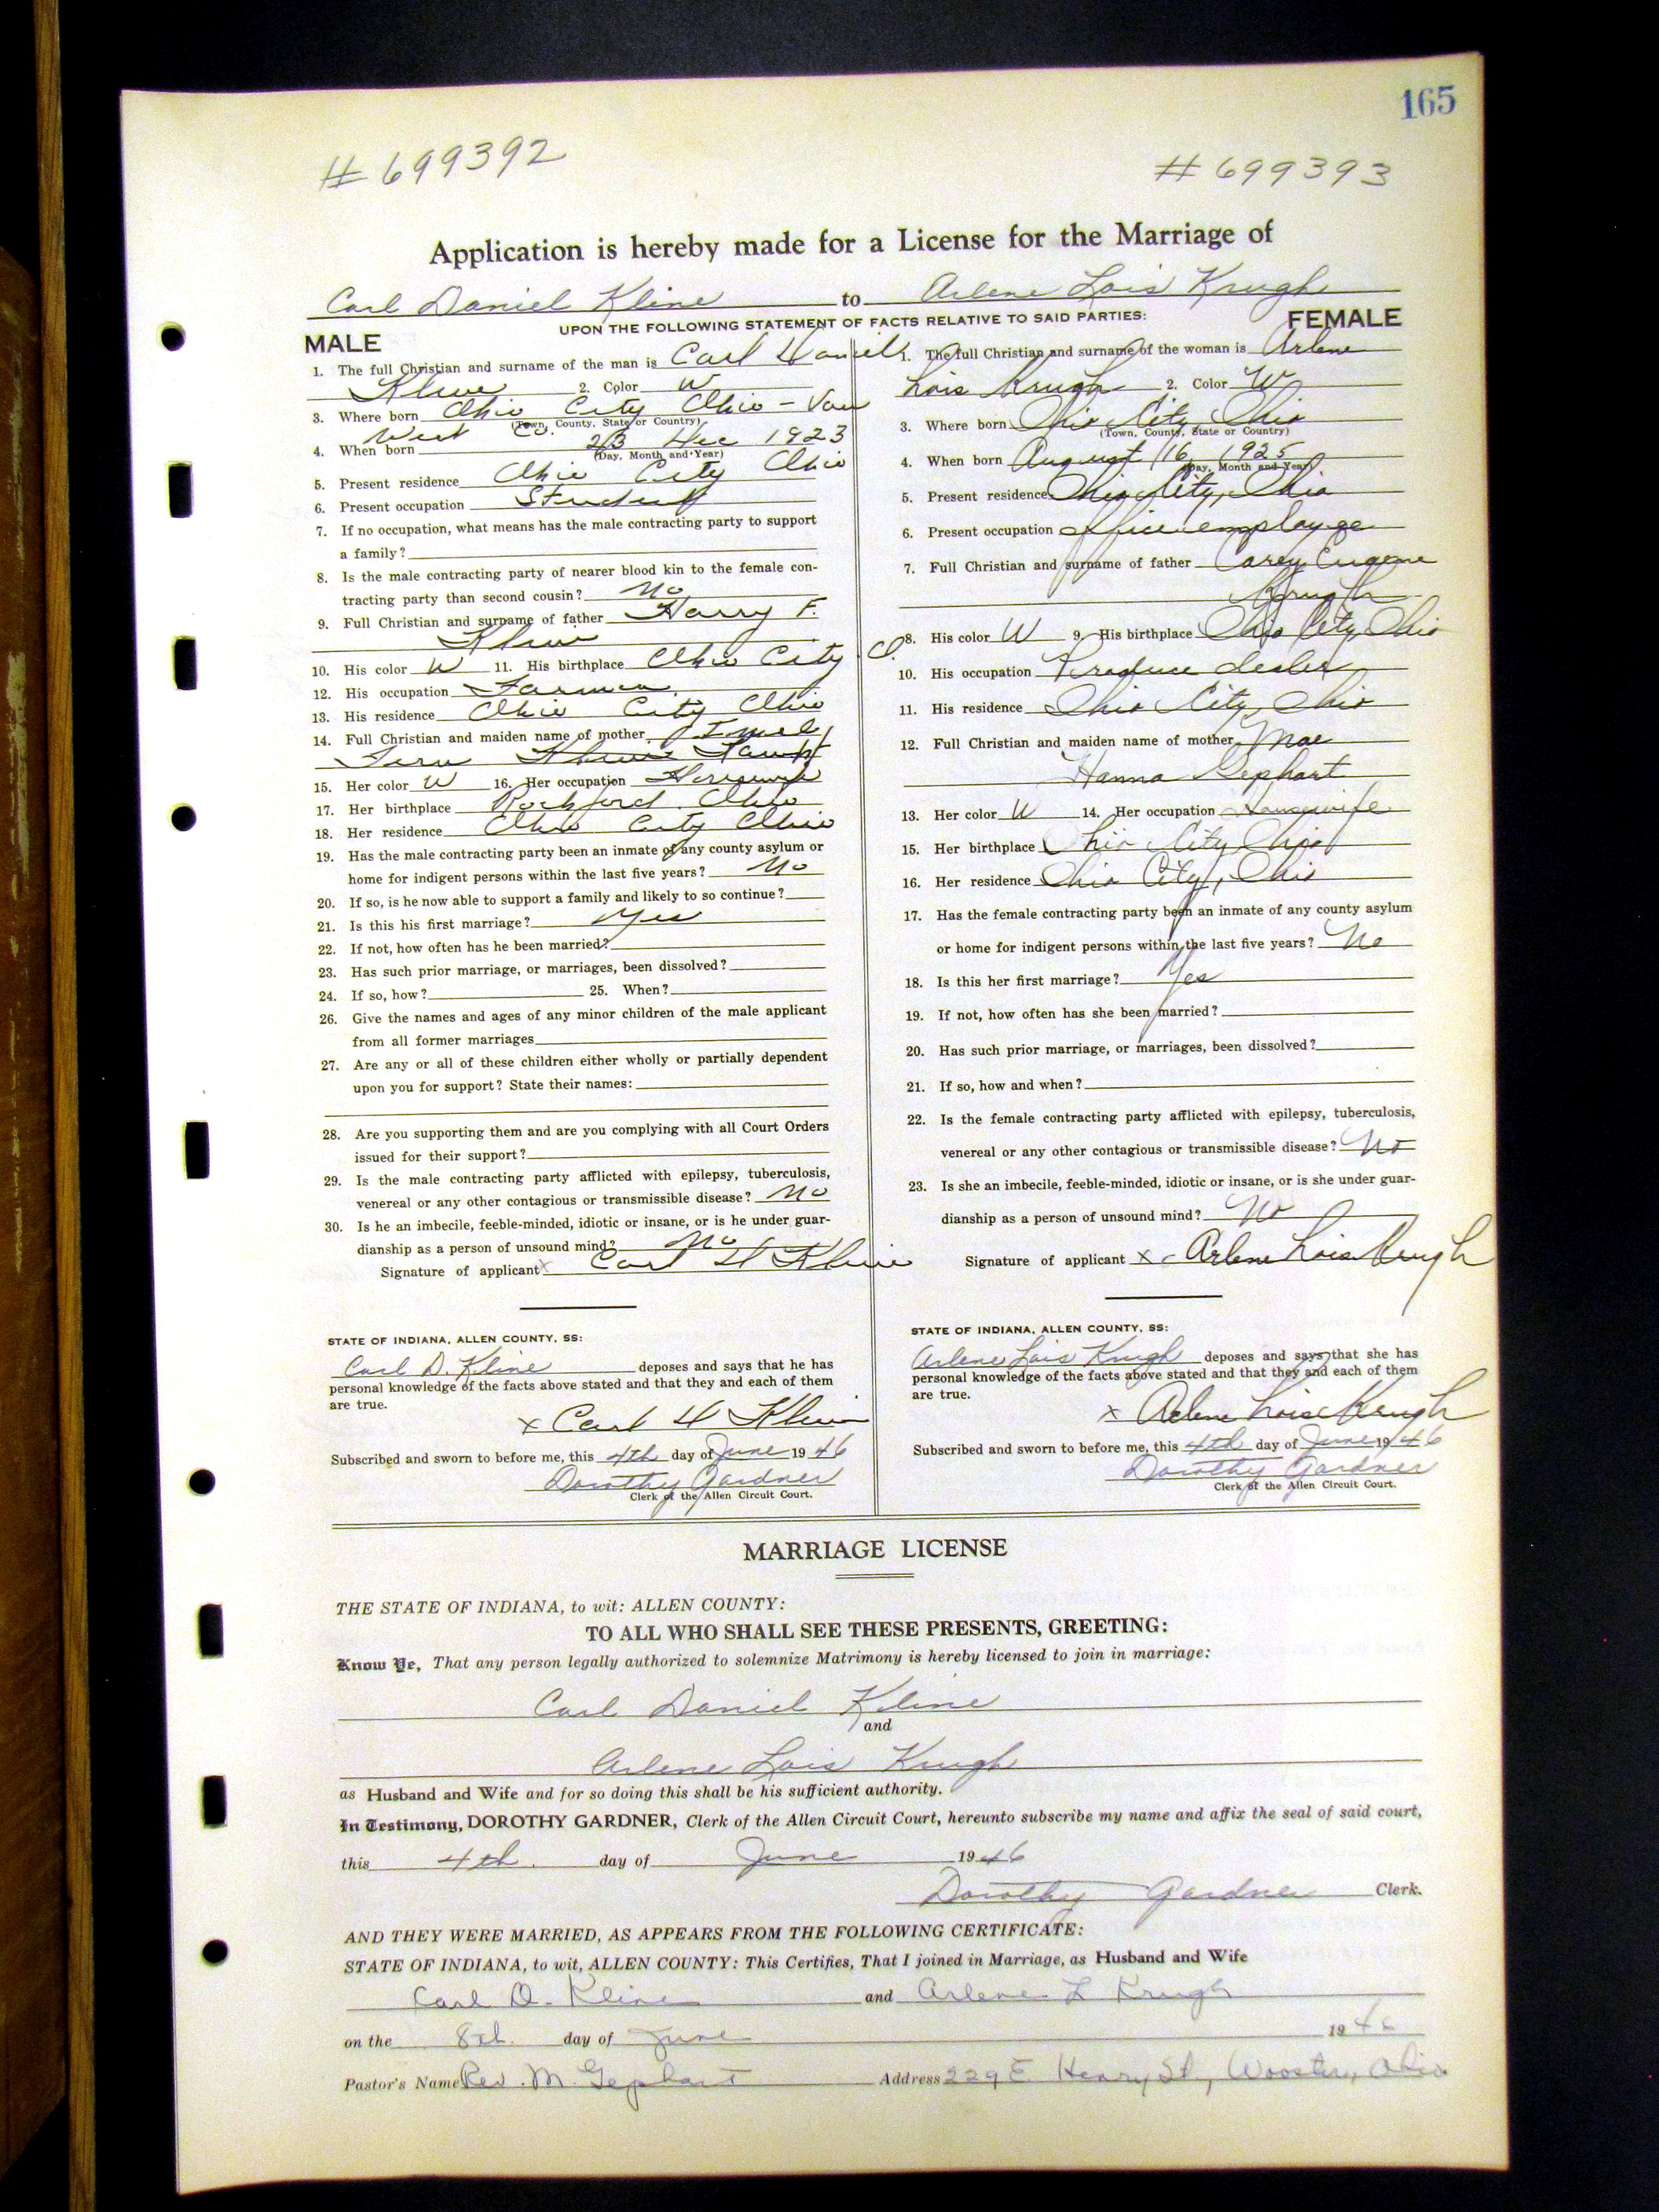 165
# 699392 # 699393
Application is hereby made for a License for the Marriage of
Carl Daniel Kline to Arlene Lois Krugh
UPON THE FOLLOWING STATEMENT OF FACTS RELATIVE TO SAID PARTIES:
MALE
1. The full Christian and surname of the man is Carl Daniel
Kline 2. Color W
3. Where born Ohio City Ohio - Van
(Town, County, State or Country)
West Co.
4. When born 23 Dec 1923
(Day, Month and Year)
5. Present residence Ohio City Ohio
6. Present occupation Student
7. If no occupation, what means has the male contracting party to support
a family?
8. Is the male contracting party of nearer blood kin to the female con-
tracting party than second cousin? No
9. Full Christian and surname of father Harry F.
Kline
10. His color W 11. His birthplace Ohio City O.
12. His occupation Farmer
13. His residence Ohio City Ohio
14. Full Christian and maiden name of mother
Fern Kline
15. Her color W 16. Her occupation Housewife
17. Her birthplace Rockford Ohio
18. Her residence Ohio City Ohio
19. Has the male contracting party been an inmate of any county asylum or
home for indigent persons within the last five years? No
20. If so, is he now able to support a family and likely to so continue?
21. Is this his first marriage? Yes
22. If not, how often has he been married?
23. Has such prior marriage, or marriages, been dissolved?
24. If so, how? 25. When?
26. Give the names and ages of any minor children of the male applicant
from all former marriages
27. Are any or all of these children either wholly or partially dependent
upon you for support? State their names:
28. Are you supporting them and are you complying with all Court Orders
issued for their support?
29. Is the male contracting party afflicted with epilepsy, tuberculosis,
venereal or any other contagious or transmissible disease? No
30. Is he an imbecile, feeble-minded, idiotic or insane, or is he under guar-
dianship as a person of unsound mind? No
Signature of applicant x Carl D Kline
STATE OF INDIANA, ALLEN COUNTY, SS:
Carl D. Kline deposes and says that he has
personal knowledge of the facts above stated and that they and each of them
are true.
x Carl D Kline
Subscribed and sworn to before me, this 4th day of June 1946
Dorothy Gardner
Clerk of the Allen Circuit Court.
FEMALE
1. The full Christian and surname of the woman is Arlene
Lois Krugh 2. Color W
3. Where born Ohio City, Ohio
(Town, County, State or Country)
4. When born August 16, 1925
(Day, Month and Year)
5. Present residence Ohio City, Ohio
6. Present occupation Office employee
7. Full Christian and surname of father Carey Eugene
Krugh
8. His color W 9. His birthplace Ohio City, Ohio
10. His occupation Produce dealer
11. His residence Ohio City, Ohio
12. Full Christian and maiden name of mother Mae
Hanna Gephart
13. Her color W 14. Her occupation Housewife
15. Her birthplace Ohio City Ohio
16. Her residence Ohio City, Ohio
17. Has the female contracting party been an inmate of any county asylum
or home for indigent persons within the last five years? No
18. Is this her first marriage? Yes
19. If not, how often has she been married?
20. Has such prior marriage, or marriages, been dissolved?
21. If so, how and when?
22. Is the female contracting party afflicted with epilepsy, tuberculosis,
venereal or any other contagious or transmissible disease? No
23. Is she an imbecile, feeble-minded, idiotic or insane, or is she under guar-
dianship as a person of unsound mind? No
Signature of applicant x Arlene Lois Krugh
STATE OF INDIANA, ALLEN COUNTY, SS:
Arlene Lois Krugh deposes and says that she has
personal knowledge of the facts above stated and that they and each of them
are true.
x Arlene Lois Krugh
Subscribed and sworn to before me, this 4th day of June 1946
Dorothy Gardner
Clerk of the Allen Circuit Court.
MARRIAGE LICENSE
THE STATE OF INDIANA, to wit: ALLEN COUNTY:
TO ALL WHO SHALL SEE THESE PRESENTS, GREETING:
Know Ye, That any person legally authorized to solemnize Matrimony is hereby licensed to join in marriage:
Carl Daniel Kline
and
Arlene Lois Krugh
as Husband and Wife and for so doing this shall be his sufficient authority.
In Testimony, DOROTHY GARDNER, Clerk of the Allen Circuit Court, hereunto subscribe my name and affix the seal of said court,
this 4th. day of June 1946
Dorothy Gardner Clerk.
AND THEY WERE MARRIED, AS APPEARS FROM THE FOLLOWING CERTIFICATE:
STATE OF INDIANA, to wit, ALLEN COUNTY: This Certifies, That I joined in Marriage, as Husband and Wife
Carl D. Kline and Arlene L Krugh
on the 8th. day of June 1946
Pastor's Name Rev. M. Gephart Address 229 E. Henry St., Wooster, Ohio